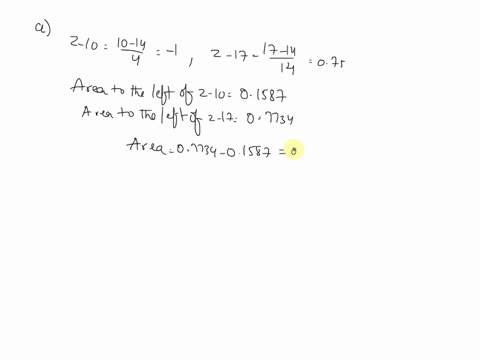 a)
z-10 = 10-14/4 = -1 , z-17 - 17-14/14 = 0.75
Area to the left of z-10 = 0.1587
Area to the left of z-17 = 0.7734
Area = 0.7734 - 0.1587 = 0